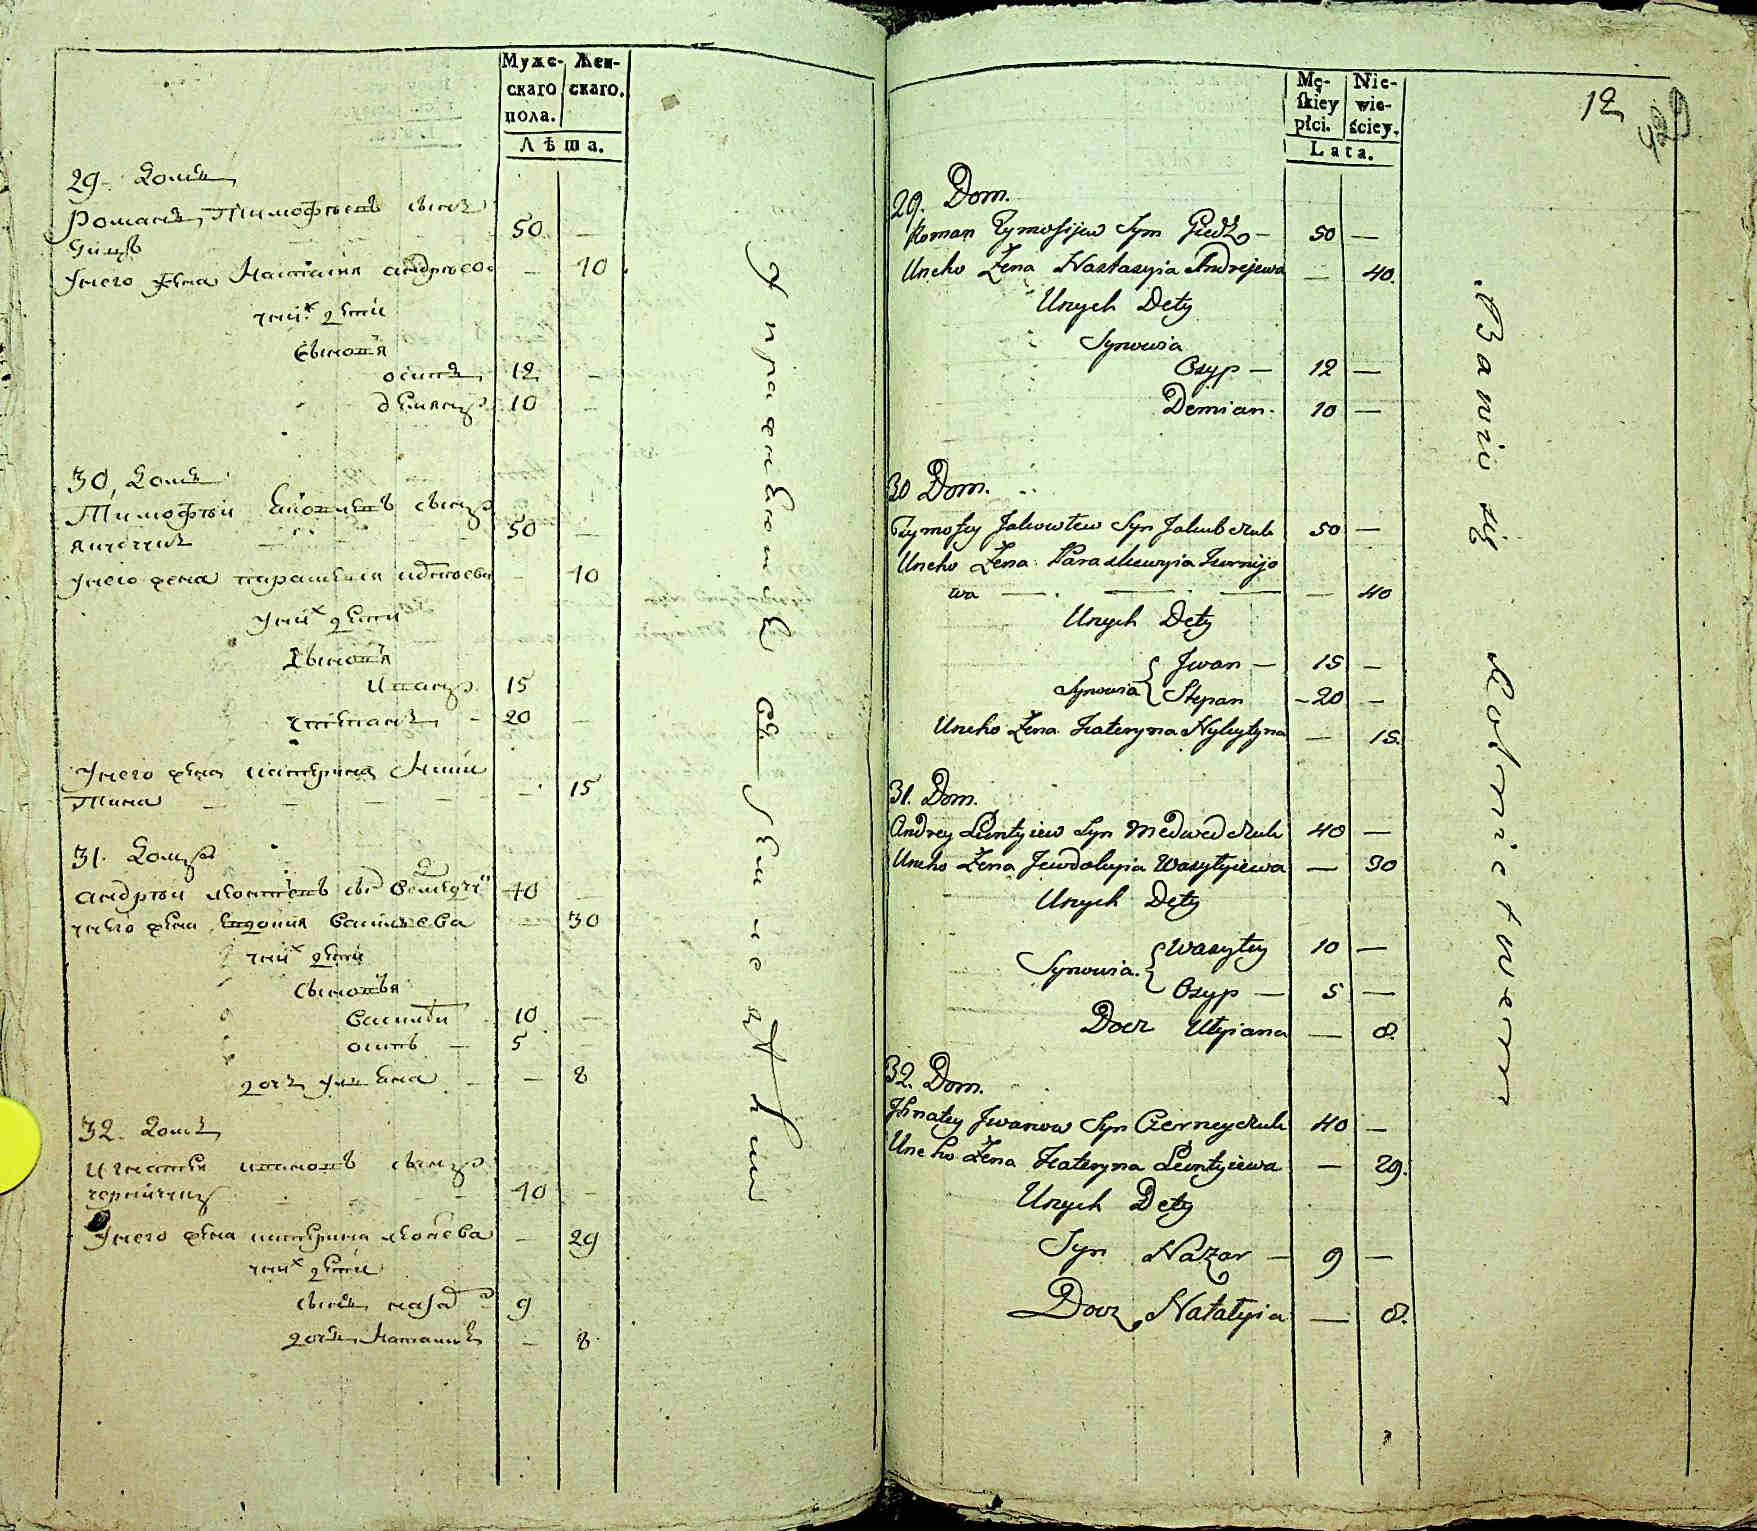 Муже- Жен-
скаго скаго.
пола.
Лѣта.
29. Домъ
Романъ Тимофѣевъ сынъ
50 —
Унего жена Настасия андрѣео.
— 40
униⷯ дети
Сыновя
осипъ 12 —
демянъ 10 —
30, Домъ
Тимофѣй сынъ
50 —
Унего жена параскевия
— 40
Униⷯ дети
Сыновя
иванъ 15
степанъ — 20 —
Унего жена катерина Мики
тина — — — — 15
31. Домъ
андрѣй 40
Унего жена Евдокия Василѣева — 30
униⷯ дети
Сыновья
Василѣй 10 —
осипъ — 5 —
дочъ улияна — — 8
32. Домъ
игнатий ивановъ сынъ
40 —
Унего жена катерина — 29
униⷯ дети
сынъ назаръ 9
дочъ Наталия — 8
Упражняются
Mę- Nie-
ſkiey wie-
płci. ściey.
Lata.
12
29. Dom.
Roman Tymofijew Syn Giedz — 50 —
Uneho Żena Nastasyia Andrejewa — 40.
Unych Dety
Synowia
Osyp — 12 —
Demian. 10 —
30 Dom.
Tymofey Jakowlew Syn Jakubczuk 50 —
Uneho Żena Paraskewyia
wa — — — — 40
Unych Dety
Synowia { Jwan — 15 —
Stepan — 20 —
Uneho Żena Kateryna Nykytyna — 15.
31. Dom.
Andrey Lewtyiew Syn Medwedczuk 40 —
Uneho Żena Jewdokyia Wasylyiewa — 30
Unych Dety
Synowia. { Wasyley 10 —
Osyp — 5 —
Docz Ulyiana — 8.
32. Dom.
Jhnatey Jwanwa Syn Czerneyczuk 40 —
Uneho Żena Kateryna Lewtyiewa — 29.
Unych Dety
Syn Nazar — 9 —
Docz Natalyia — 8.
Bawią się Rolnictwem